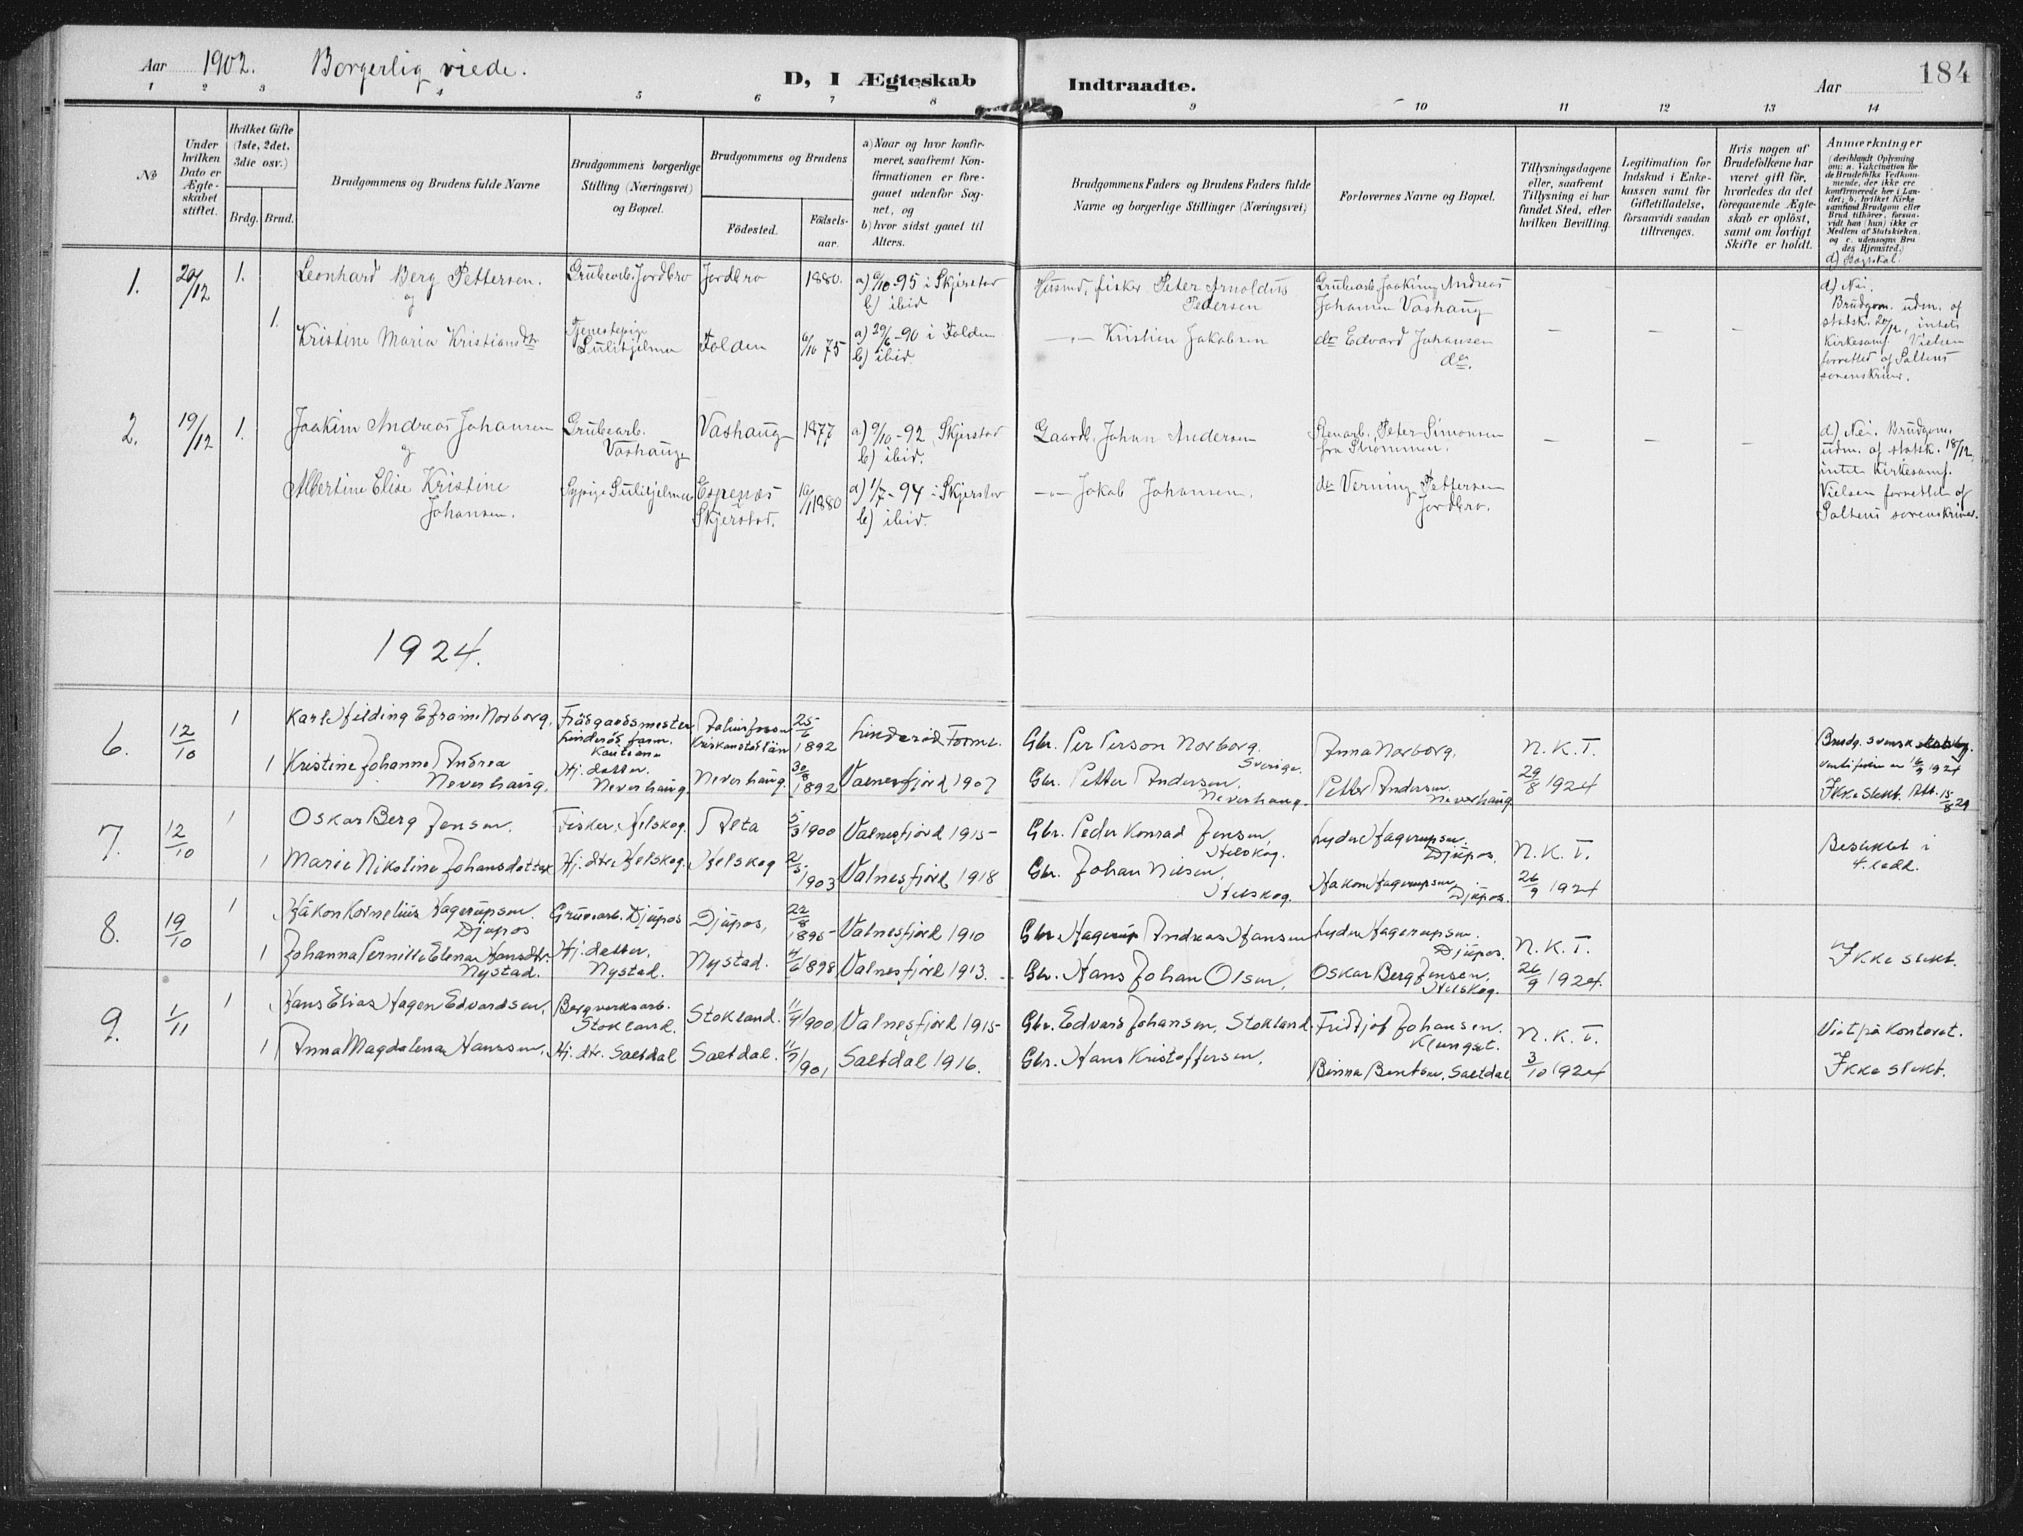 Aar 1902. Borgerlig viede.
D, I Ægteskab Indtraadte.
Aar 184
1 2 3 4 5 6 7 8 9 10 11 12 13 14
№
Under hvilken Dato er Ægteskabet stiftet.
Hvilket Gifte (1ste, 2det, 3die osv.)
Brdg. Brud.
Brudgommens og Brudens fulde Navne
Brudgommens borgerlige Stilling (Næringsvei) og Bopæl.
Brudgommens og Brudens
Fødested. Fødselsaar.
a) Naar og hvor konfirmeret, saafremt Konfirmationen er foregaaet udenfor Sognet, og
b) hvor sidst gaaet til Alters.
Brudgommens Faders og Brudens Faders fulde Navne og borgerlige Stillinger (Næringsvei)
Forlovernes Navne og Bopæl.
Tillysningsdagene eller, saafremt Tillysning ei har fundet Sted, efter hvilken Bevilling.
Legitimation for Indskud i Enkekassen samt for Giftetilladelse, forsaavidt saadan tiltrænges.
Hvis nogen af Brudefolkene har været gift før, hvorledes da det foregaaende Ægteskab er opløst, samt om lovligt Skifte er holdt.
Anmærkninger
(deriblandt Oplysning om: a. Vakcination for de Brudefolks Vedkommende, der ikke ere konfirmerede her i Landet; b. hvilket Kirkesamfund Brudgom eller Brud tilhører, forsaavidt han (hun) ikke er Medlem af Statskirken, og c. udensogns Brudes Hjemsted.)
1. 20/12 1. Leonhard Berg Pettersen. Grubearb. Jordbro Jordbro 1880. a) 9/10-95 i Skjerstad
og b) ibid Husmd, fisker Peter Arnoldus Pedersen Grubearb. Joakim Andreas Johansen Vashaug
1. Kristine Maria Kristiansdtr Tjenestepige Sulitjelma Folden 6/10 75 a) 29/6-90 i Folden b) ibid.
-"- Kristien Jakobsen do Edvard Johansen do. - - -
d) Nei. Brudgom. udm. af statsk. 20/12, intet kirkesamf. Vielsen forretted af Saltens sorenskriver.
2. 19/12 1. Joakim Andreas Johansen Grubearb. Vashaug Vashaug 1877 a) 9/10-92 Skjerstad b) ibid.
og Gaardb. Johan Andersen Stenarb. Peter Simonsen fra Strømmen. - - -
Albertine Elise Kristine Johansen. Sypige Sulitjelma Espenæs Skjerstad. 16/1 1880 a) 1/7-94 i Skjerstad b) ibid.
-"- Jakob Johansen. do Verning Pettersen Jordbro.
d) Nei. Brudgom. udm. af statsk. 18/12, intet kirkesamf. Vielsen forretted af Saltens sorenskriver.
1924.
6. 12/10 1 Karl Hilding Efraim Norborg, 25/6 1892 Linderød Forml.
Gbr. Per Person Norborg. Sverige. Anna Norborg. N. K. T.
1 Kristine Johanne Andrea Neverhaug. Hj. datter. Neverhaug Neverhaug 30/8 1892 Valnesfjord 1907
Gbr. Petter Andersen, Neverhaug. Petter Andersen Neverhaug 29/8 1924
Brudg. svensk 16/9 1924
Ikke slekt. Att. 15/8 24
7. 12/10 1 Oskar Berg Jensen. Fisker, Helskog Alta 5/3 1900 Valnesfjord 1915
Gbr. Peder Konrad Jensen, Helskog. Lyder Hagerupsen. Djupos. N. K. T.
1 Marie Nikoline Johansdatter Hj. dtr. Helskog. Helskog 2/5 1903 Valnesfjord 1918
Gbr. Johan Nilsen, Helskog. Hakon Hagerupsen Djupos. 26/9 1924
Beslektet i 4. ledd.
8. 19/10 1 Håkon Kornelius Hagerupsen. Djupos Gruvearb. Djupos Djupos, 22/8 1895 Valnesfjord 1910
Gbr Hagerup Andreas Hansen Lyder Hagerupsen. Djupos. N. K. T.
1 Johanna Pernille Elena Hansdtr. Nystad. Hj. datter, Nystad. Nystad. 4/6 1898 Valnesfjord 1913.
Gbr. Hans Johan Olsen, Oskar Berg Jensen, Helskog. 26/9 1924.
Ikke slekt.
9. 1/11 1 Hans Elias Hagen Edvardsen, Bergverksarb. Stokland. Stokland. 11/4 1900, Valnesfjord 1915
Gbr. Edvard Johansen, Stokland Fridtjof Johansen. Klungset. N. K. T.
1 Anna Magdalena Hanssen, Hj. dtr. Saltdal Saltdal. 11/7 1901 Saltdal 1916.
Gbr. Hans Kristoffersen, Benna Bentsen, Saltdal 3/10 1924
Viet på kontoret.
Ikke slekt.